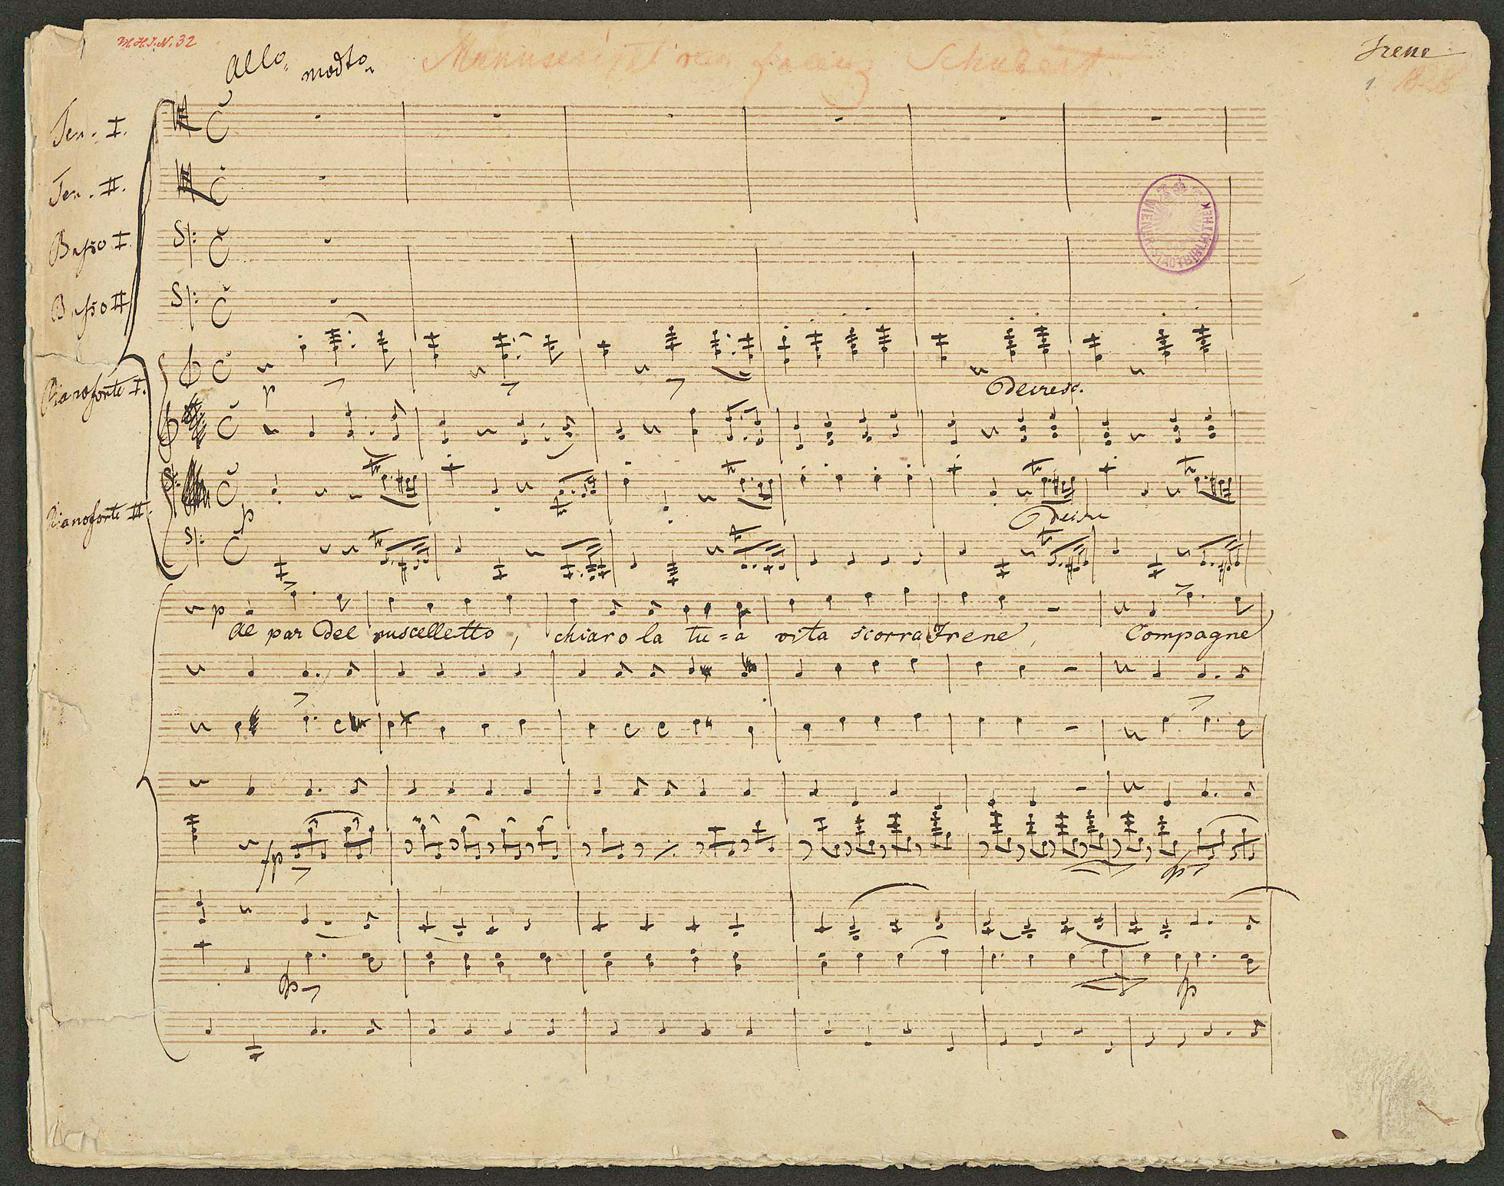 M.H.I.N. 32
Allo. modto.
Manuscript von Franz Schubert
Irene
1.
1828
Ten. I.
Ten. II.
Basso I
Basso II
Pianoforte I.
p
Decresc.
Pianoforte II.
p
Decre
p
Al par del ruscelletto, chiaro la tu=a vita scorra Irene, Compagne
fp
p
p
p